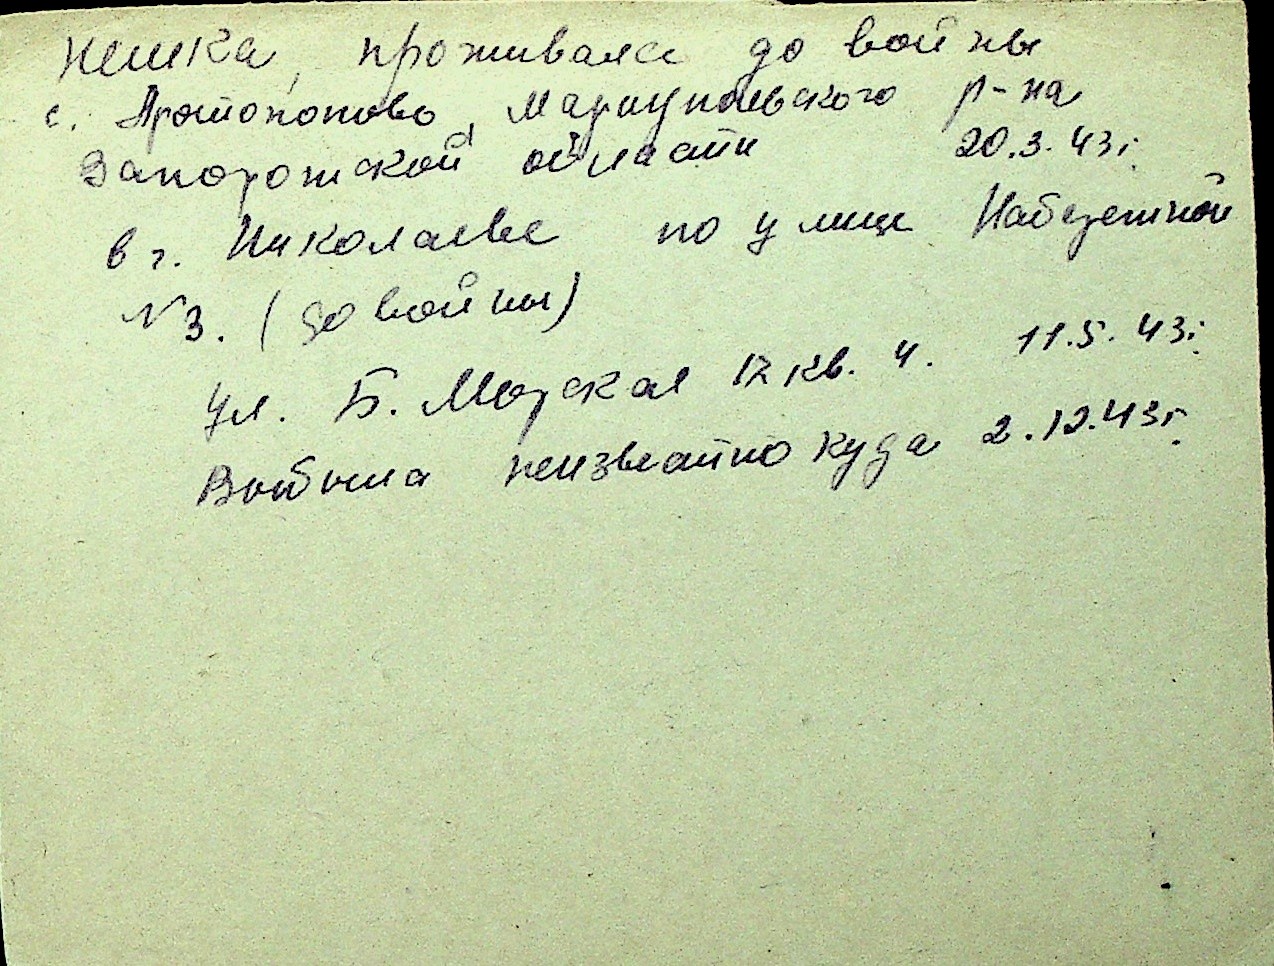 немка, проживала до войны
с. Протопопово, Мариупольского р-на
Запорожской области 20.3.43г.
в г. Николаеве по улице Набережной
№3. (до войны)
ул. Б. Морская 12 кв. 4. 11.5.43г.
Выбыла неизвестно куда 2.12.43г.